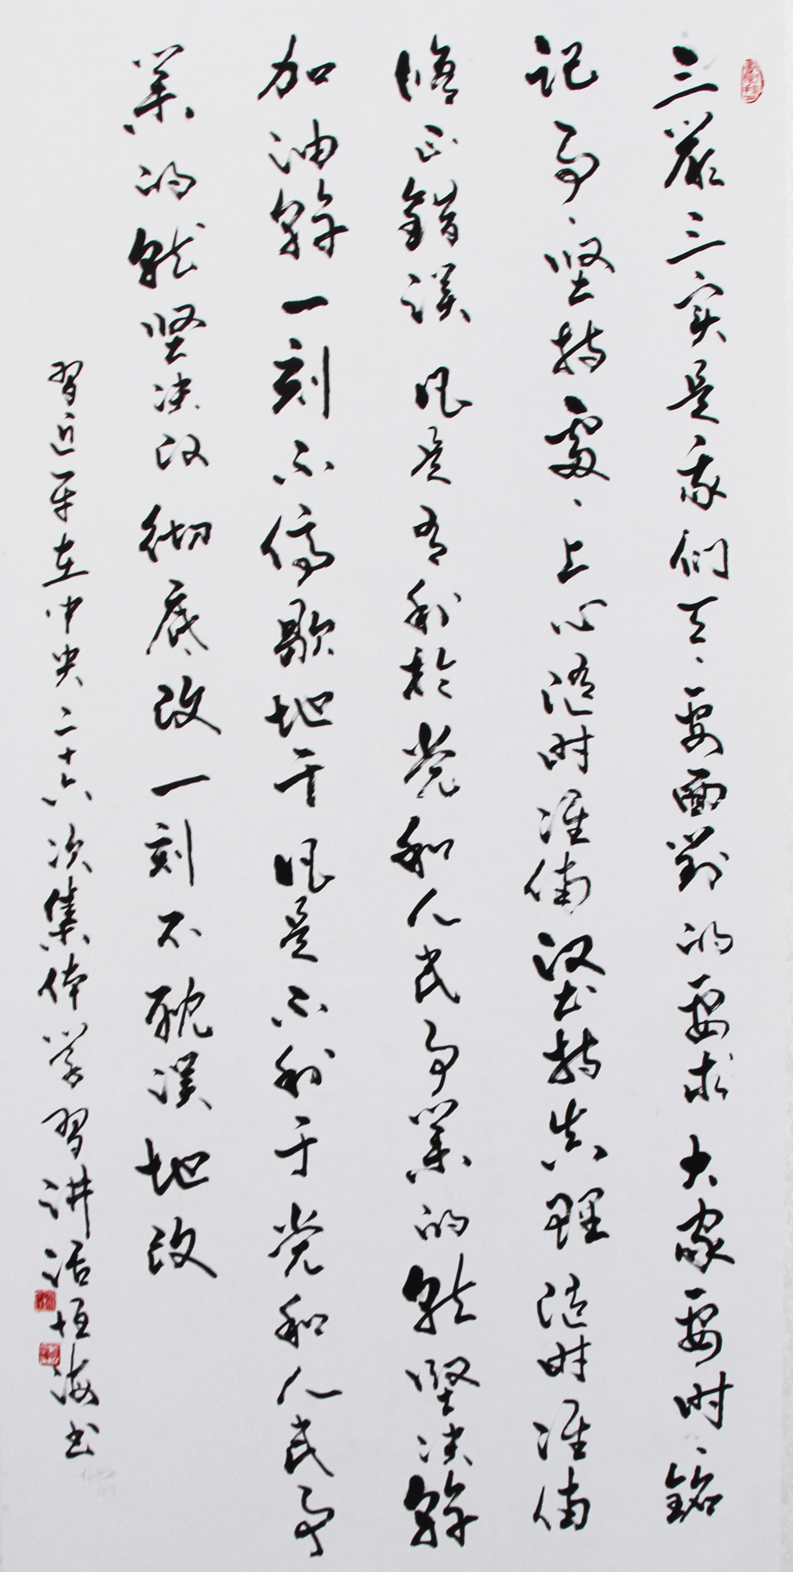 三嚴三实是我们天、要面對的要求大家要时、銘
记事、坚持處、上心随时准備坚持真理随时准備
修正錯误凡是有利於党和人民事業的就堅决幹
加油幹一刻不停歇地干凡是不利于党和人民事
業的就坚决改彻底改一刻不耽误地改
習近平在中央二十六次集体学習讲话恒海书